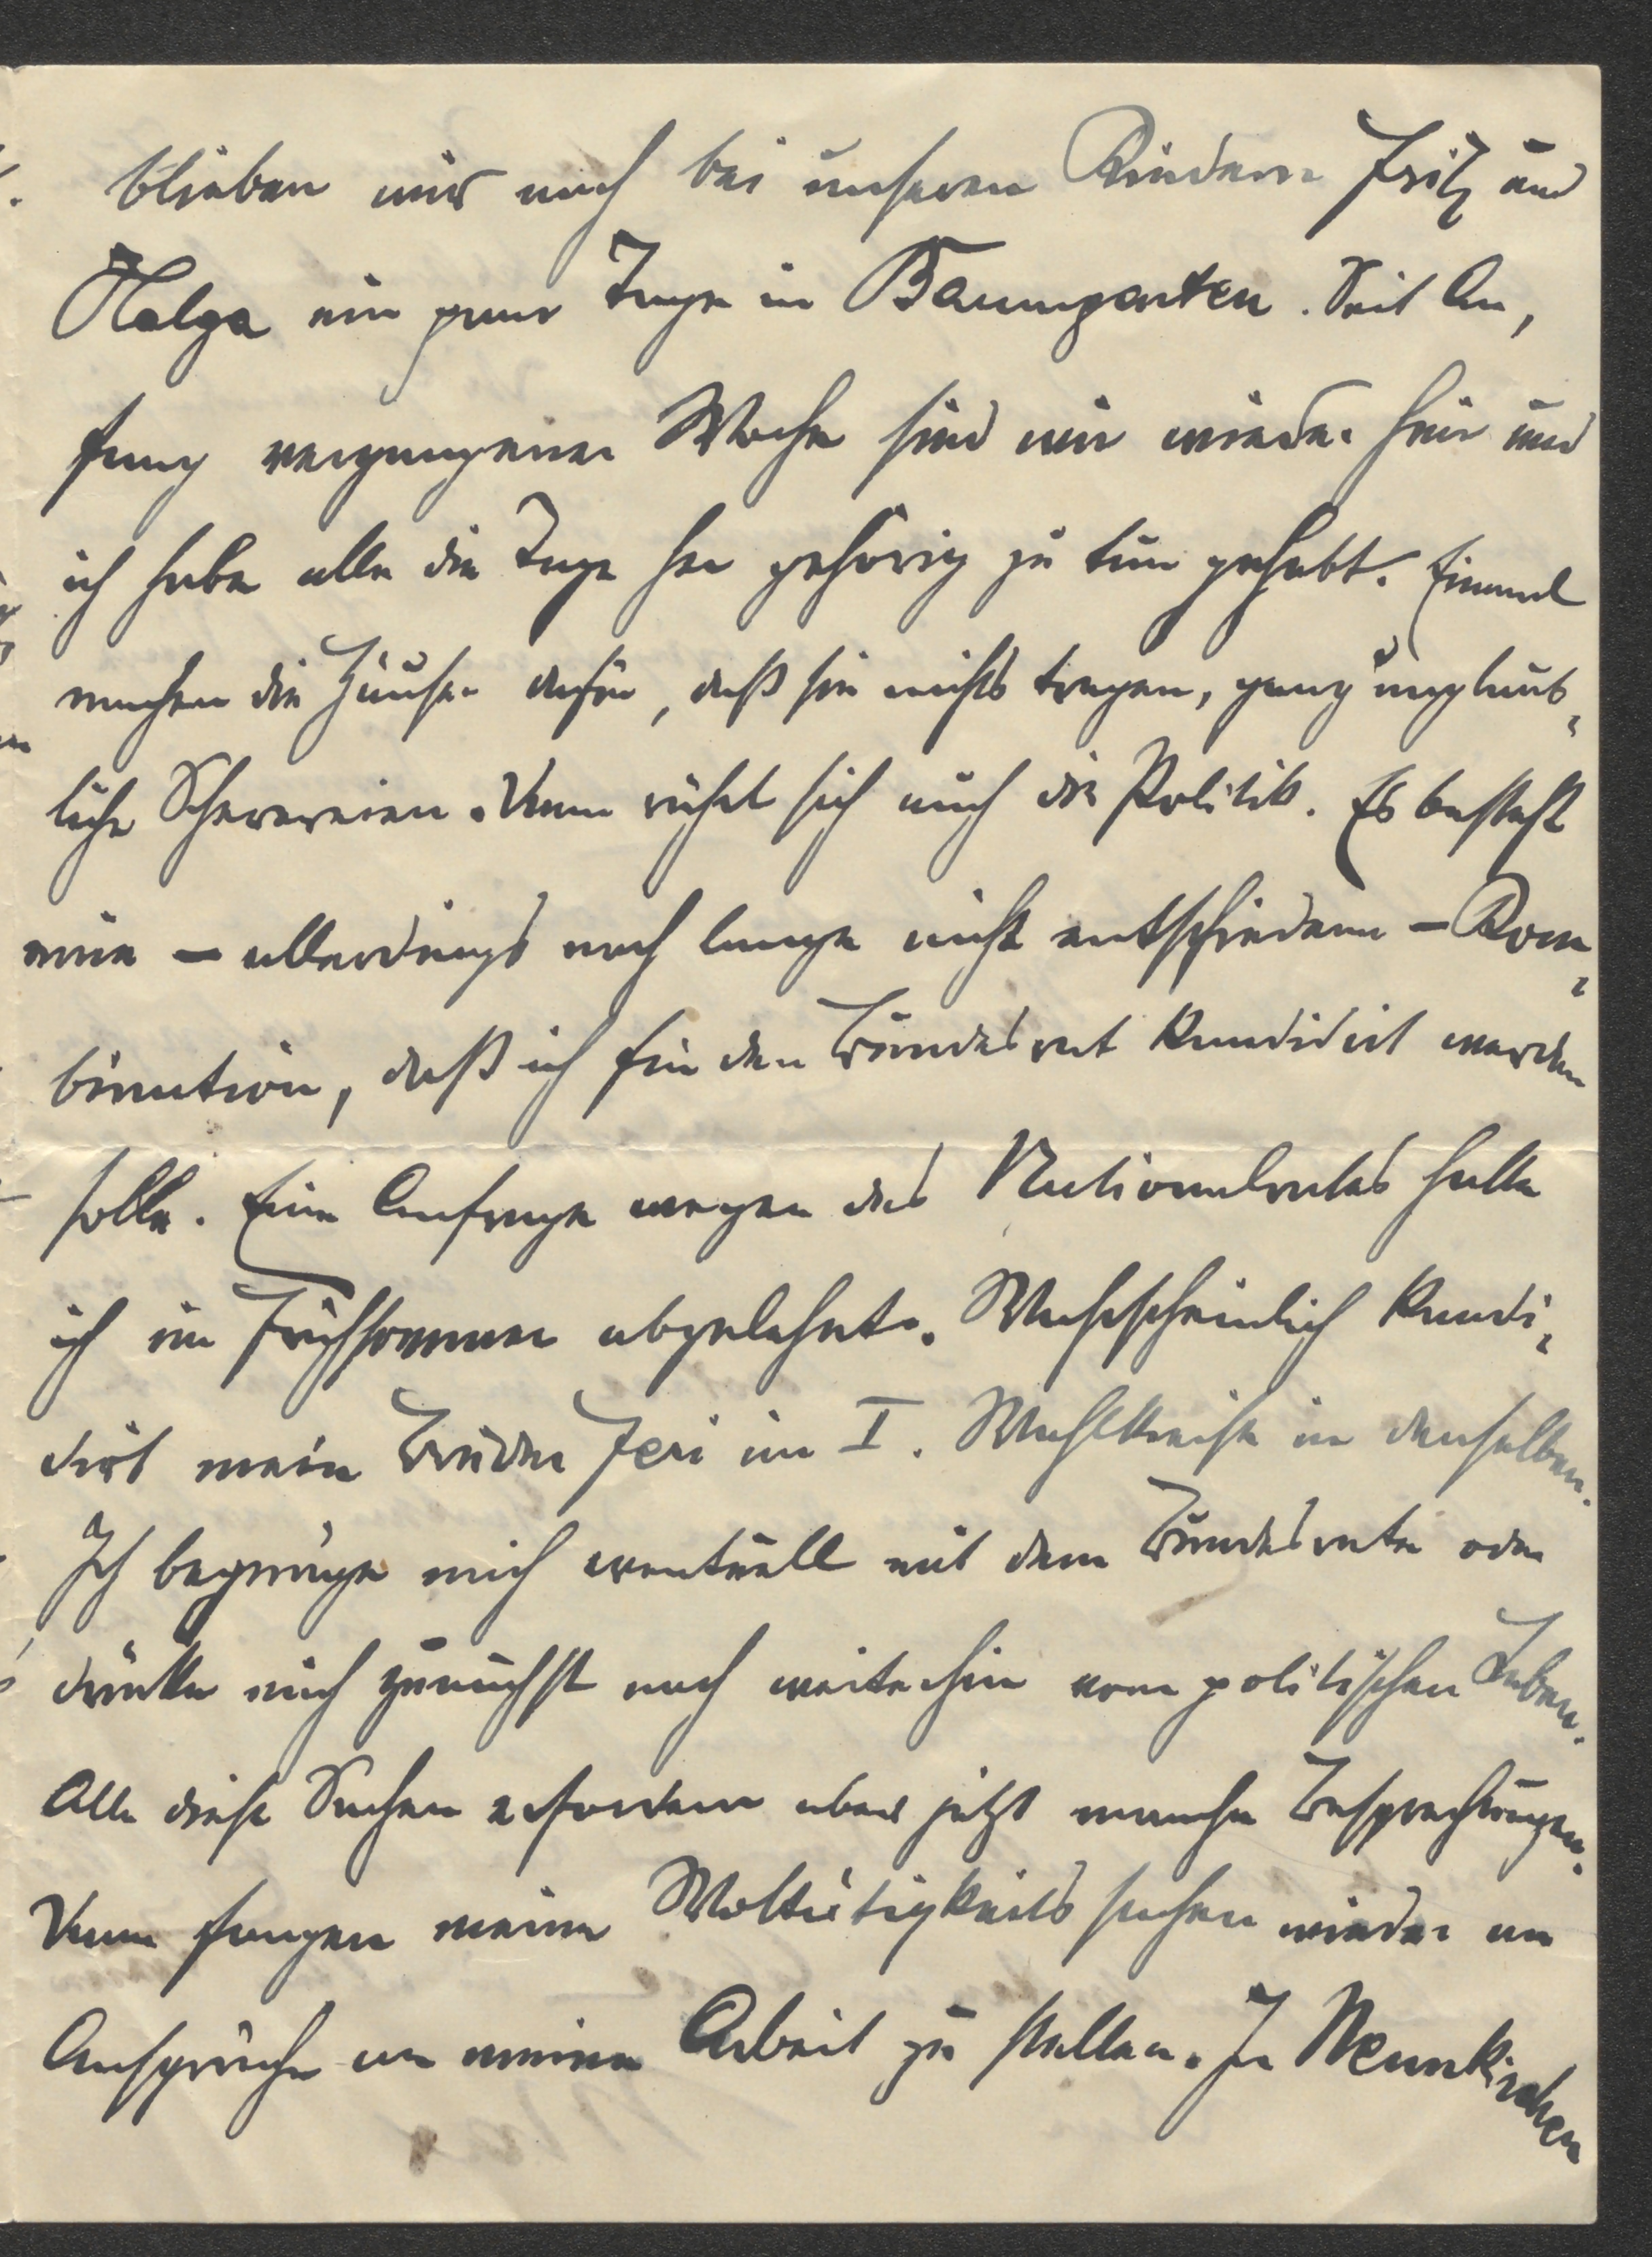 blieben wir noch bei unseren Kindern Fritz und
Helga ein paar Tage in Baumgarten. Seit An-
fang vergangener Woche sind wir wieder hier und
ich habe alle die Tage her gehörig zu tun gehabt. Einmal
machen die Häuser dafür, daß sie nichts tragen, ganz unglaub-
liche Scherereien. Dann rührt sich auch die Politik. Es besteht
eine – allerdings noch lange nicht entschiedene – Kom-
bination, daß ich für den Bundesrat kandidirt werden
solle. Eine Anfrage wegen des Nationalrates hatte
ich im Frühsommer abgelehnt. Wahrscheinlich kandi-
dirt mein Bruder Feri im I. Wahlkreise in denselben.
Ich begnüge mich eventuell mit dem Bundesrate oder
drücke mich zunächst noch weiterhin vom politischen Leben.
Alle diese Sachen erfordern aber jetzt manche Besprechungen.
Dann fangen meine Woltätigkeitssachen wieder an
Ansprüche an meine Arbeit zu stellen. In Neunkirchen